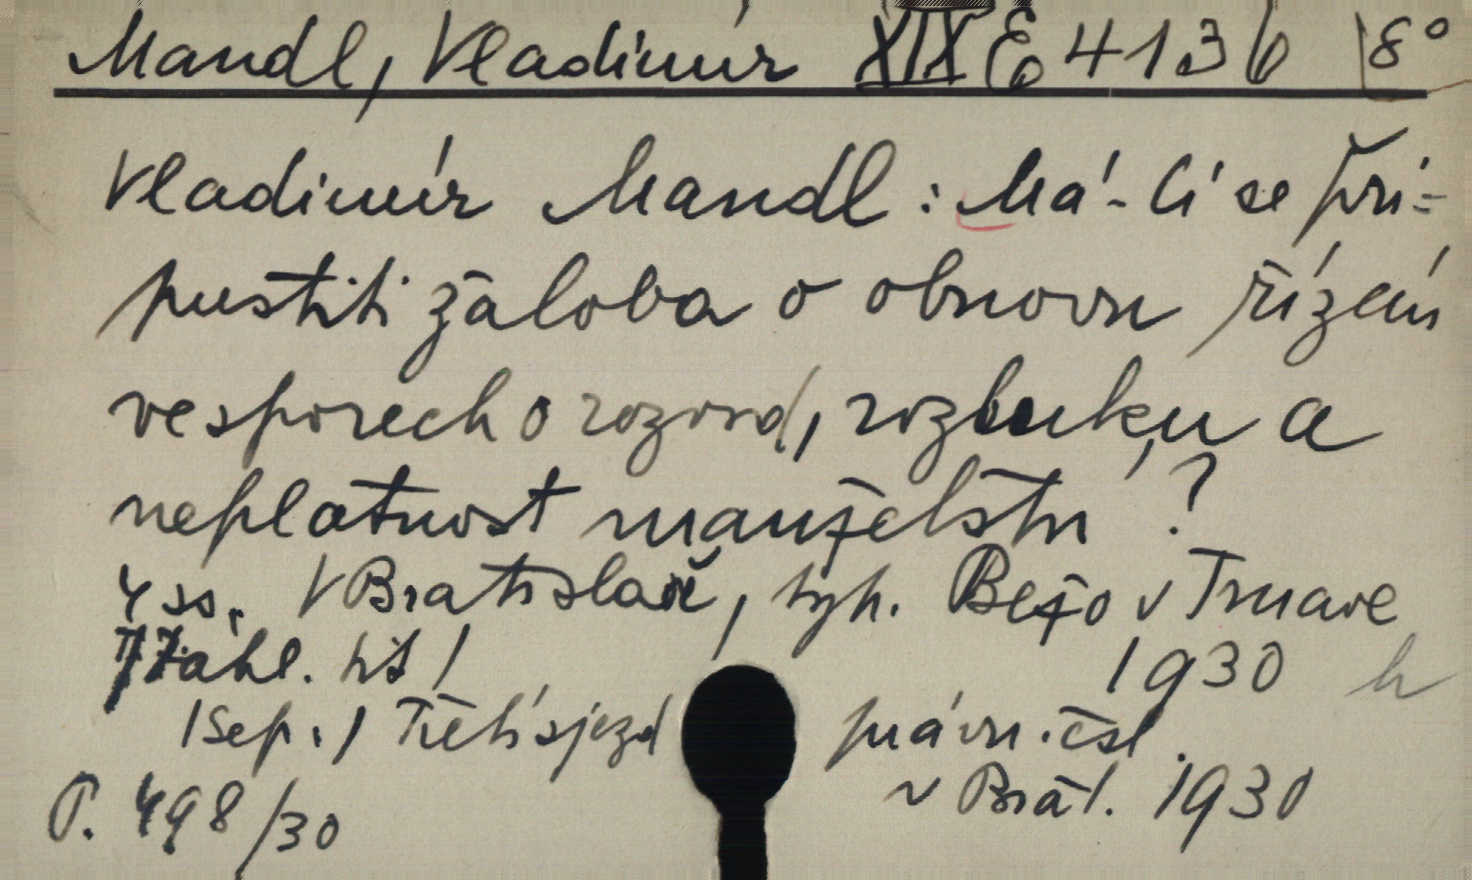 Mandl, Vladimír XIX E 4136 8°
Vladimír Mandl: Má-li se při=
pustiti žaloba o obnovu řízení
ve sporech o rozvod, rozluku a
neplatnost manželství?
4 ss. V Bratislavě, typ. Bežo v Trnave
/Záhl. tit/ 1930
/Sep./ Třetí sjezd právn. čsl.
v Brat. 1930
P. 498/30